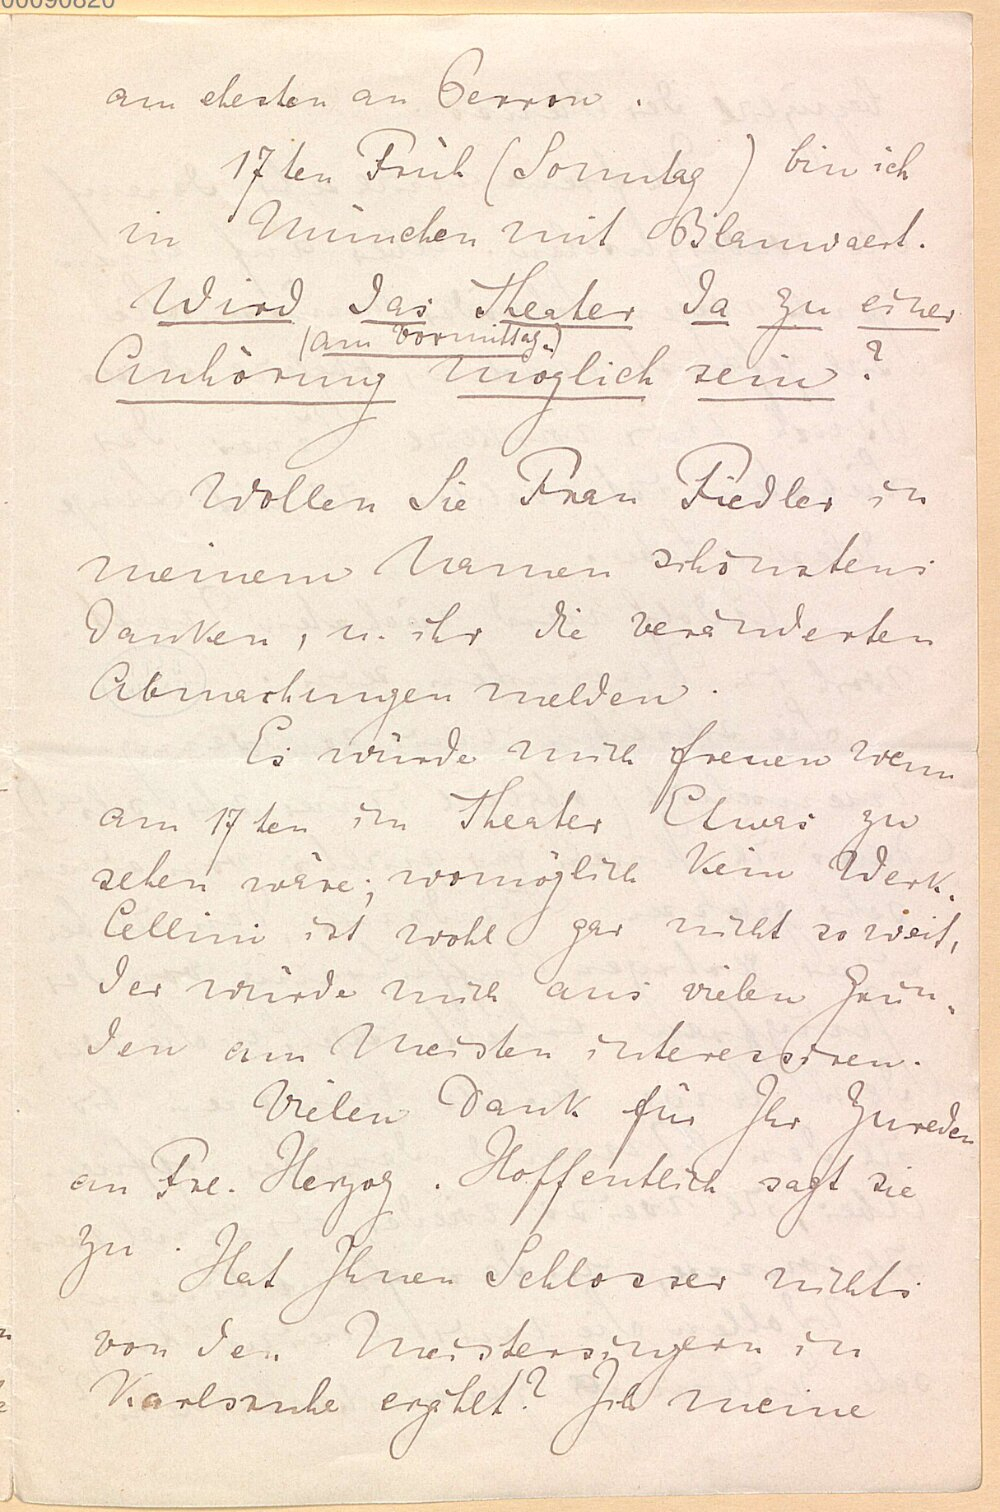 00090820
am ehesten an Perron.
17ten Früh (Sonntag) bin ich
in München mit Blauwaert.
Wird das Theater da zu einer
(am Vormittag)
Anhörung möglich sein?
Wollen Sie Frau Fiedler in
meinem Namen schönstens
danken, u. ihr die veränderten
Abmachungen melden.
Es würde mich freuen wenn
am 17ten im Theater Etwas zu
sehen wäre; womöglich kein Werk.
Cellini ist wohl gar nicht so weit,
der würde mich aus vielen Grün-
den am Meisten interessiren.
Vielen Dank für Ihr Zureden
an Frl. Herzog. Hoffentlich sagt sie
zu. Hat Ihnen Schlosser nichts
von den Meistersingern in
Karlsruhe erzählt? Ich meine